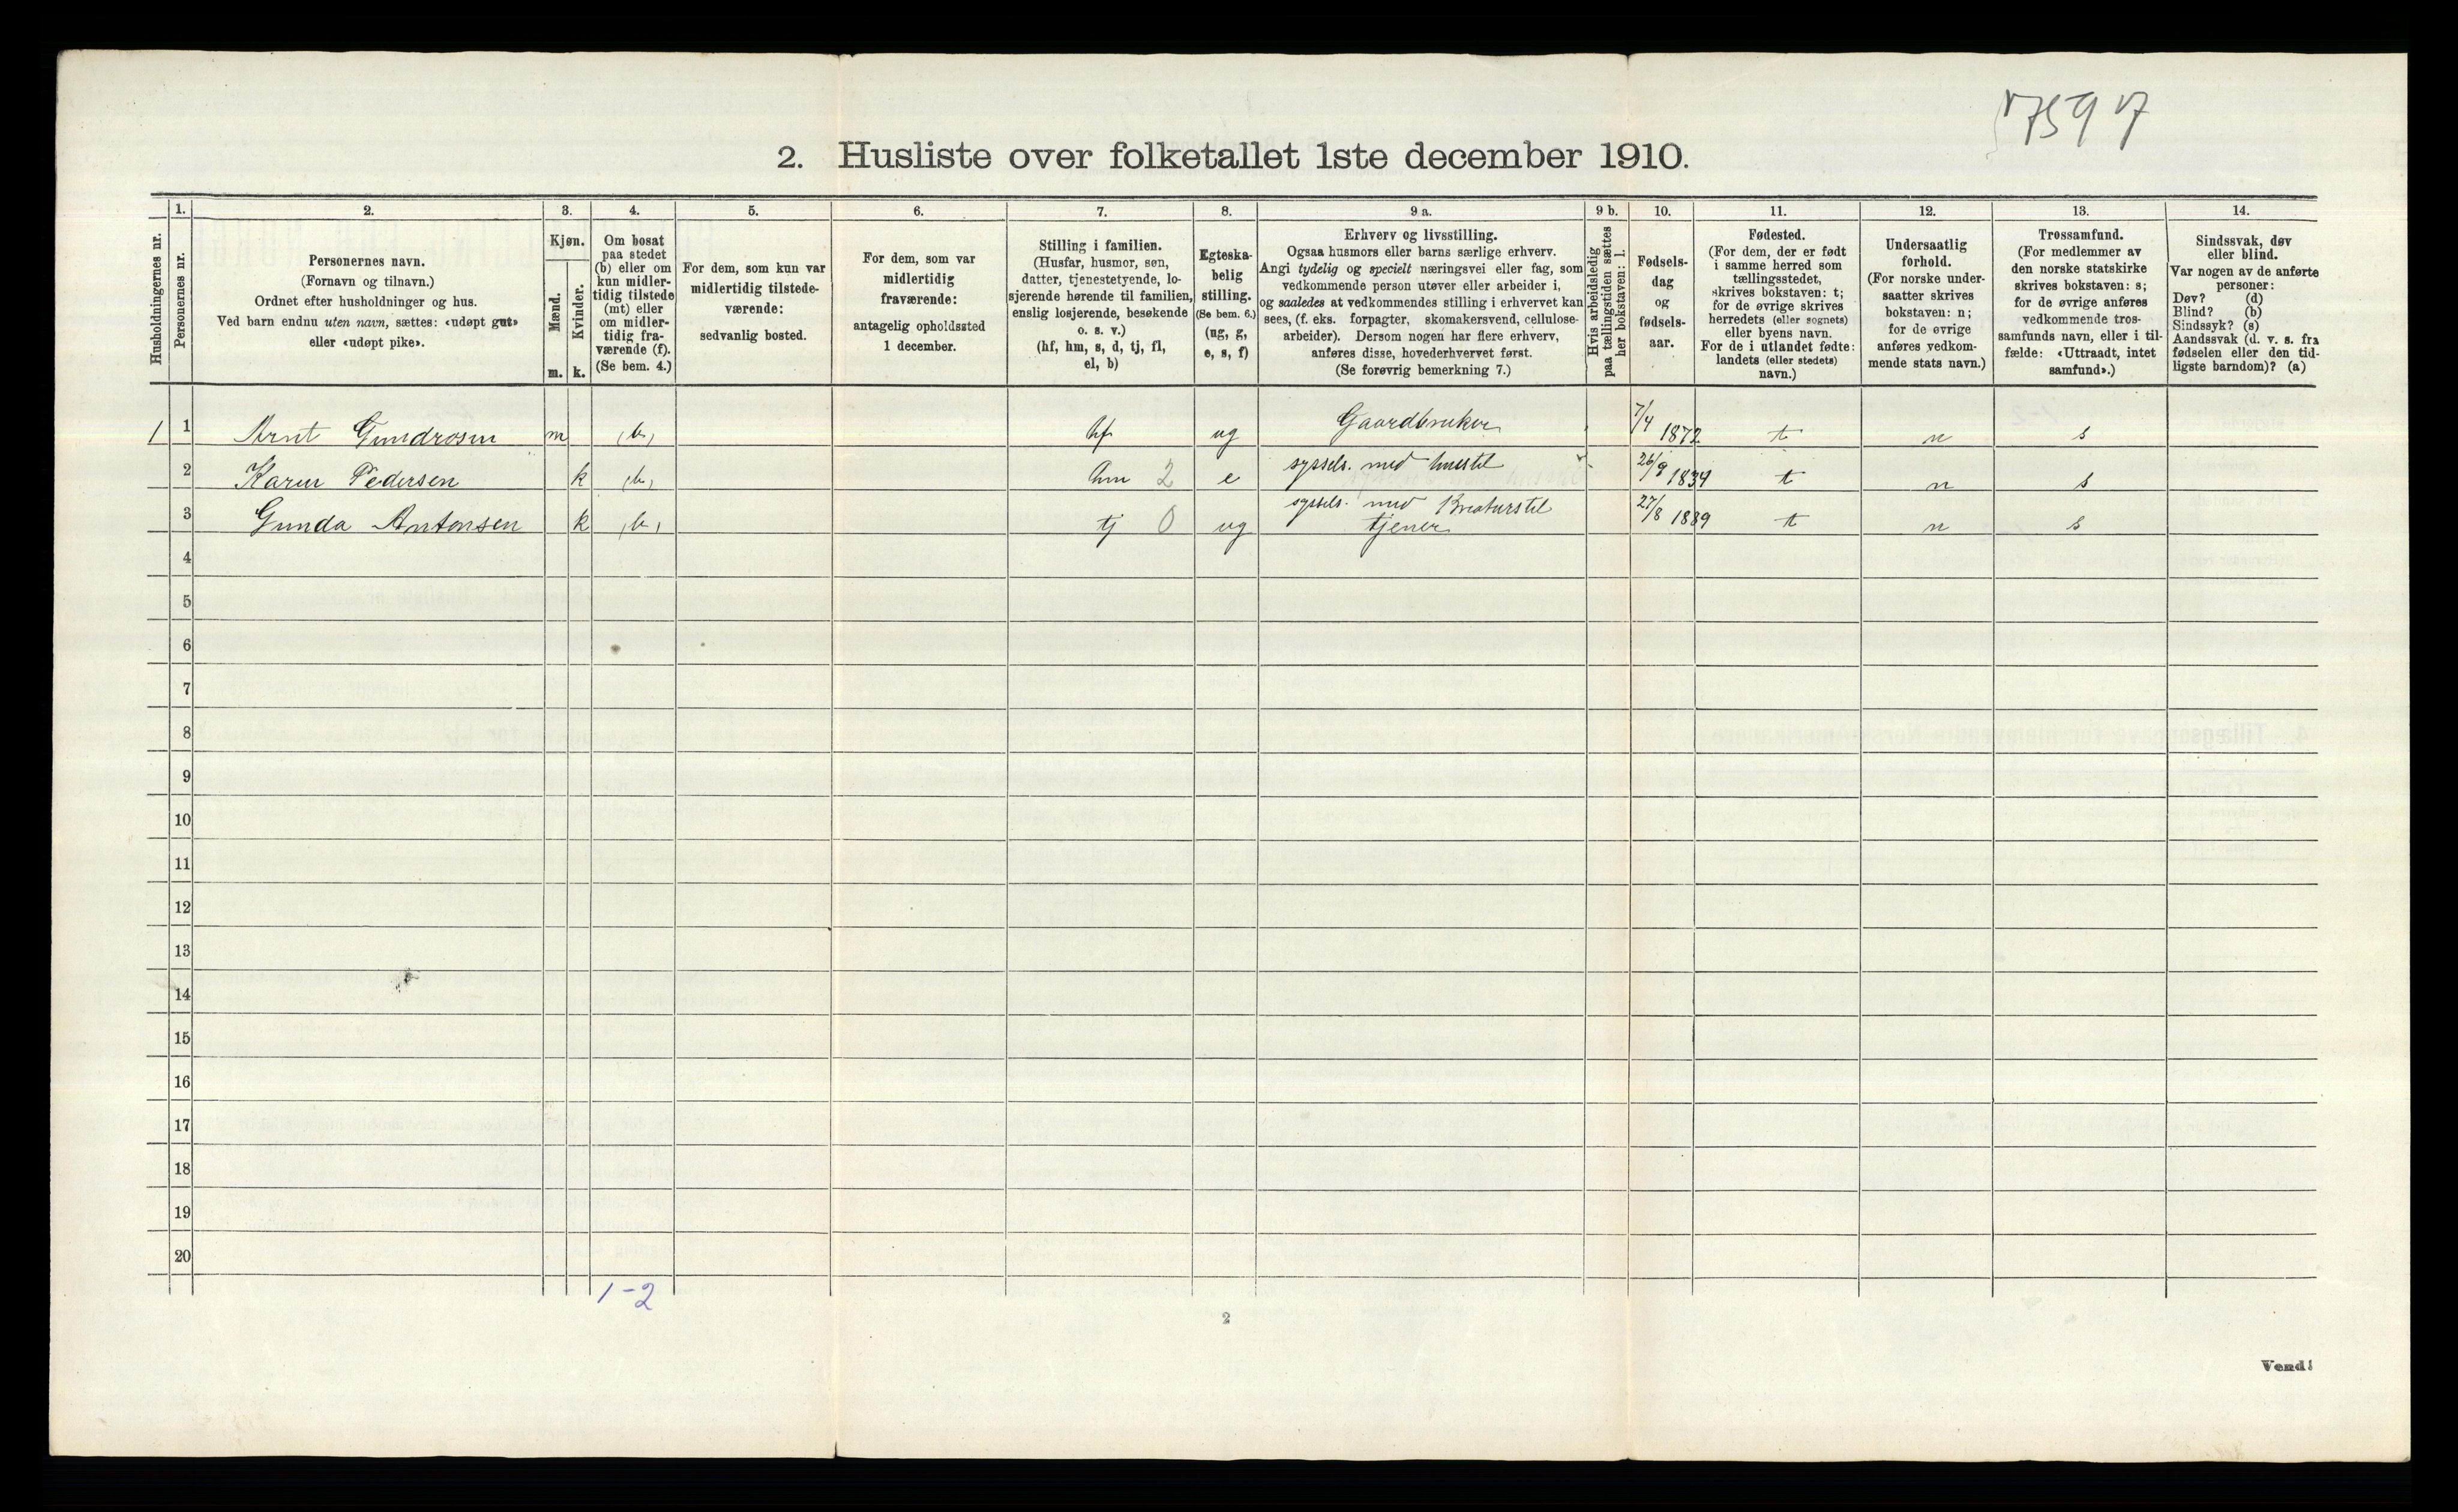 7597
2. Husliste over folketallet 1ste december 1910.
Husholdningernes nr.
1.
Personernes nr.
2.
Personernes navn.
(Fornavn og tilnavn.)
Ordnet efter husholdninger og hus.
Ved barn endnu uten navn, sættes: «udøpt gut»
eller «udøpt pike».
3.
Kjøn.
Mænd.
Kvinder.
m.
k.
4.
Om bosat
paa stedet
(b) eller om
kun midler-
tidig tilstede
(mt) eller
om midler-
tidig fra-
værende (f).
(Se bem. 4.)
5.
For dem, som kun var
midlertidig tilstede-
værende:
sedvanlig bosted.
6.
For dem, som var
midlertidig
fraværende:
antagelig opholdssted
1 december.
7.
Stilling i familien.
(Husfar, husmor, søn,
datter, tjenestetyende, lo-
sjerende hørende til familien,
enslig losjerende, besøkende
o. s. v.)
(hf, hm, s, d, tj, fl,
el, b)
8.
Egteska-
belig
stilling.
(Se bem. 6.)
(ug, g,
e, s, f)
9 a.
Erhverv og livsstilling.
Ogsaa husmors eller barns særlige erhverv.
Angi tydelig og specielt næringsvei eller fag, som
vedkommende person utøver eller arbeider i,
og saaledes at vedkommendes stilling i erhvervet kan
sees, (f. eks. forpagter, skomakersvend, cellulose-
arbeider). Dersom nogen har flere erhverv,
anføres disse, hovederhvervet først.
(Se forøvrig bemerkning 7.)
9 b.
Hvis arbeidsledig
paa tællingstiden sættes
her bokstaven: l.
10.
Fødsels-
dag
og
fødsels-
aar.
11.
Fødested.
(For dem, der er født
i samme herred som
tællingsstedet,
skrives bokstaven: t;
for de øvrige skrives
herredets (eller sognets)
eller byens navn.
For de i utlandet fødte:
landets (eller stedets)
navn.)
12.
Undersaatlig
forhold.
(For norske under-
saatter skrives
bokstaven: n;
for de øvrige
anføres vedkom-
mende stats navn.)
13.
Trossamfund.
(For medlemmer av
den norske statskirke
skrives bokstaven: s;
for de øvrige anføres
vedkommende tros-
samfunds navn, eller i til-
fælde: «Uttraadt, intet
samfund».)
14.
Sindssvak, døv
eller blind.
Var nogen av de anførte
personer:
Døv? (d)
Blind? (b)
Sindssyk? (s)
Aandssvak (d. v. s. fra
fødselen eller den tid-
ligste barndom)? (a)
1 1 Arnt Gundrosen m (b) hf ug Gaardbruker 7/4 1872 t n s
2 Karen Pedersen k (b) hm 2 e syssels. med husstel 26/9 1834 t n s
3 Gunda Antonsen k (b) tj 0 ug syssels. med Kreaturstel tjener 27/8 1889 t n s
4
5
6
7
8
9
10
11
12
13
14
15
16
17
18
19
20
1-2
2
Vend!